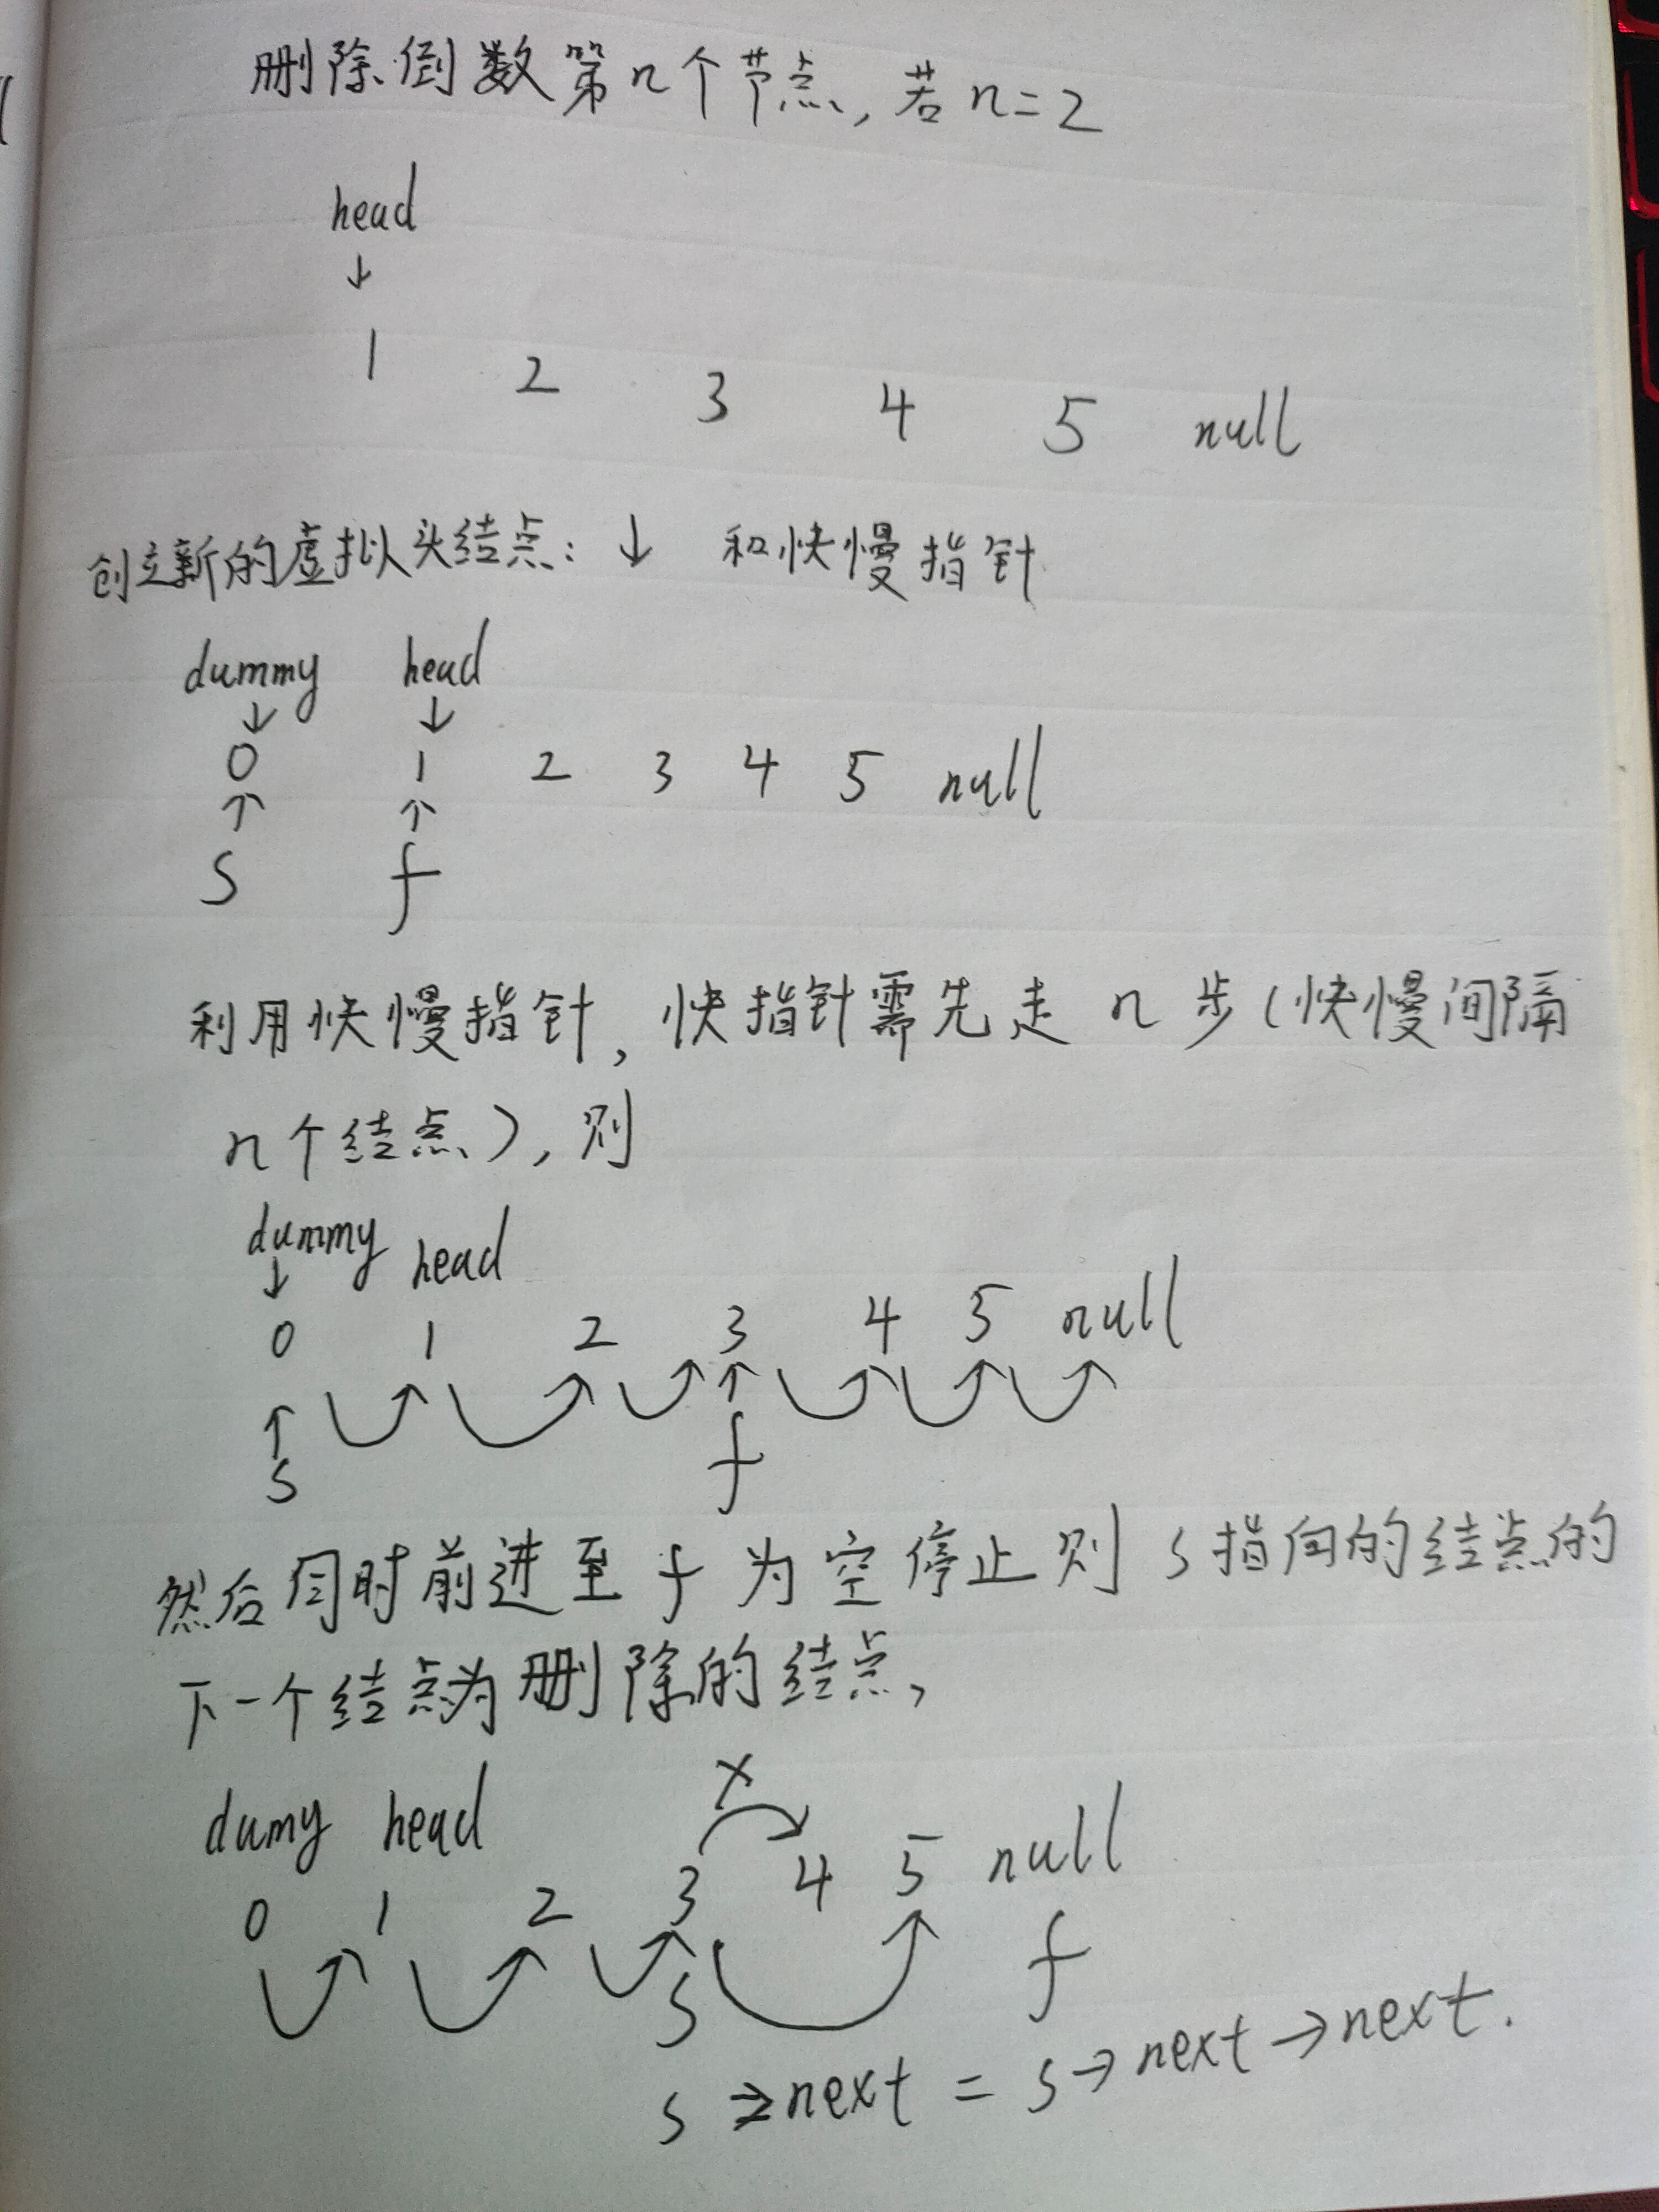 删除倒数第n个节点,若n=2
head
↓
1 2 3 4 5 null
创立新的虚拟头结点:↓ 和快慢指针
dummy head
↓ ↓
0 1 2 3 4 5 null
↑ ↑
s f
利用快慢指针,快指针需先走n步(快慢间隔
n个结点),则
dummy head
↓
0 1 2 3 4 5 null
↑ ↑
s f
然后同时前进至f为空停止则s指向的结点的
下一个结点为删除的结点,
x
dumy head
0 1 2 3 4 5 null
s f
s→next = s→next→next.